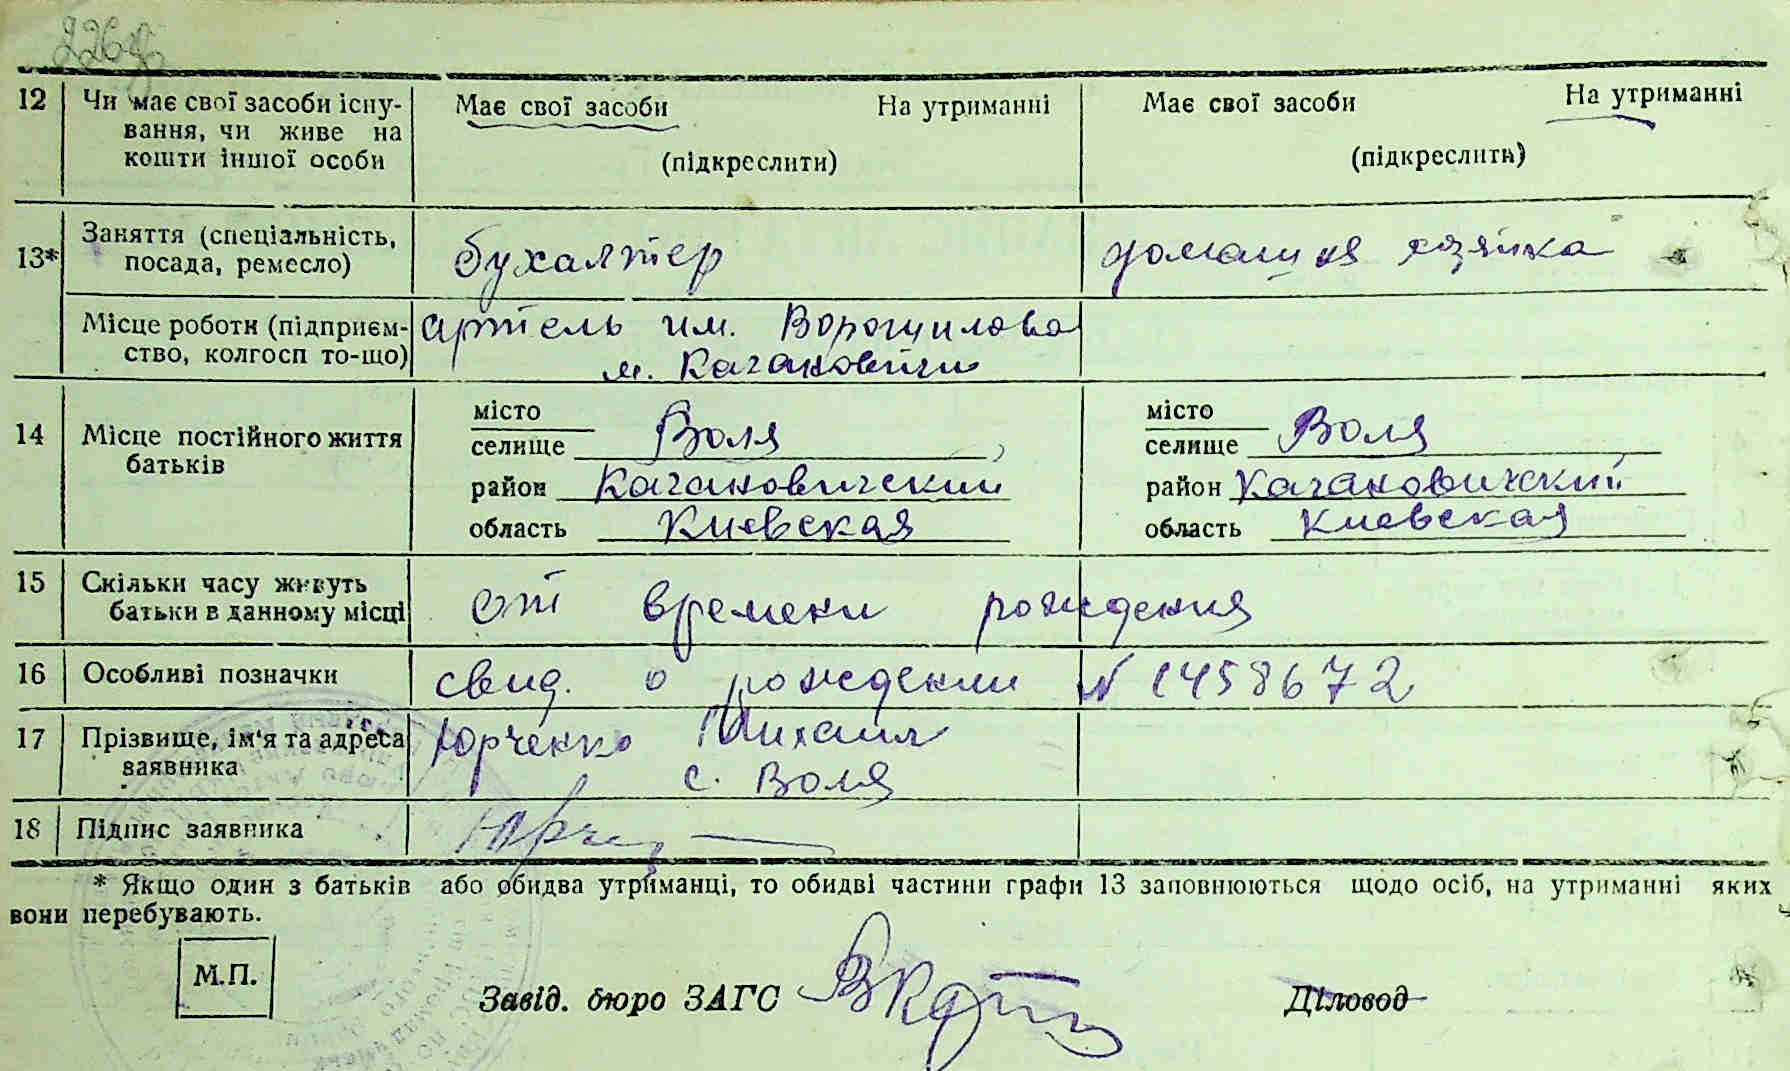 12 Чи має свої засоби існу- Має свої засоби На утриманні Має свої засоби На утриманні
вання, чи живе на
кошти іншої особи (підкреслити) (підкреслити)
13* Заняття (спеціальність, бухалтер домашня хазяйка
посада, ремесло)
Місце роботи (підприєм- артель им. Ворошилова
ство, колгосп то-що) м. Кагановичи
14 Місце постійного життя місто місто
батьків селище Воля селище Воля
район Кагановичский район Кагановичский
область Киевская область Киевская
15 Скільки часу живуть от времени рождения
батьки в данному місці
16 Особливі позначки свид. о рождении N 1458672
17 Прізвище, ім'я та адреса Юрченко Михаил
заявника с. Воля
18 Підпис заявника
* Якщо один з батьків або обидва утриманці, то обидві частини графи 13 заповнюються щодо осіб, на утриманні яких
вони перебувають.
М.П.
Завід. бюро ЗАГС Діловод